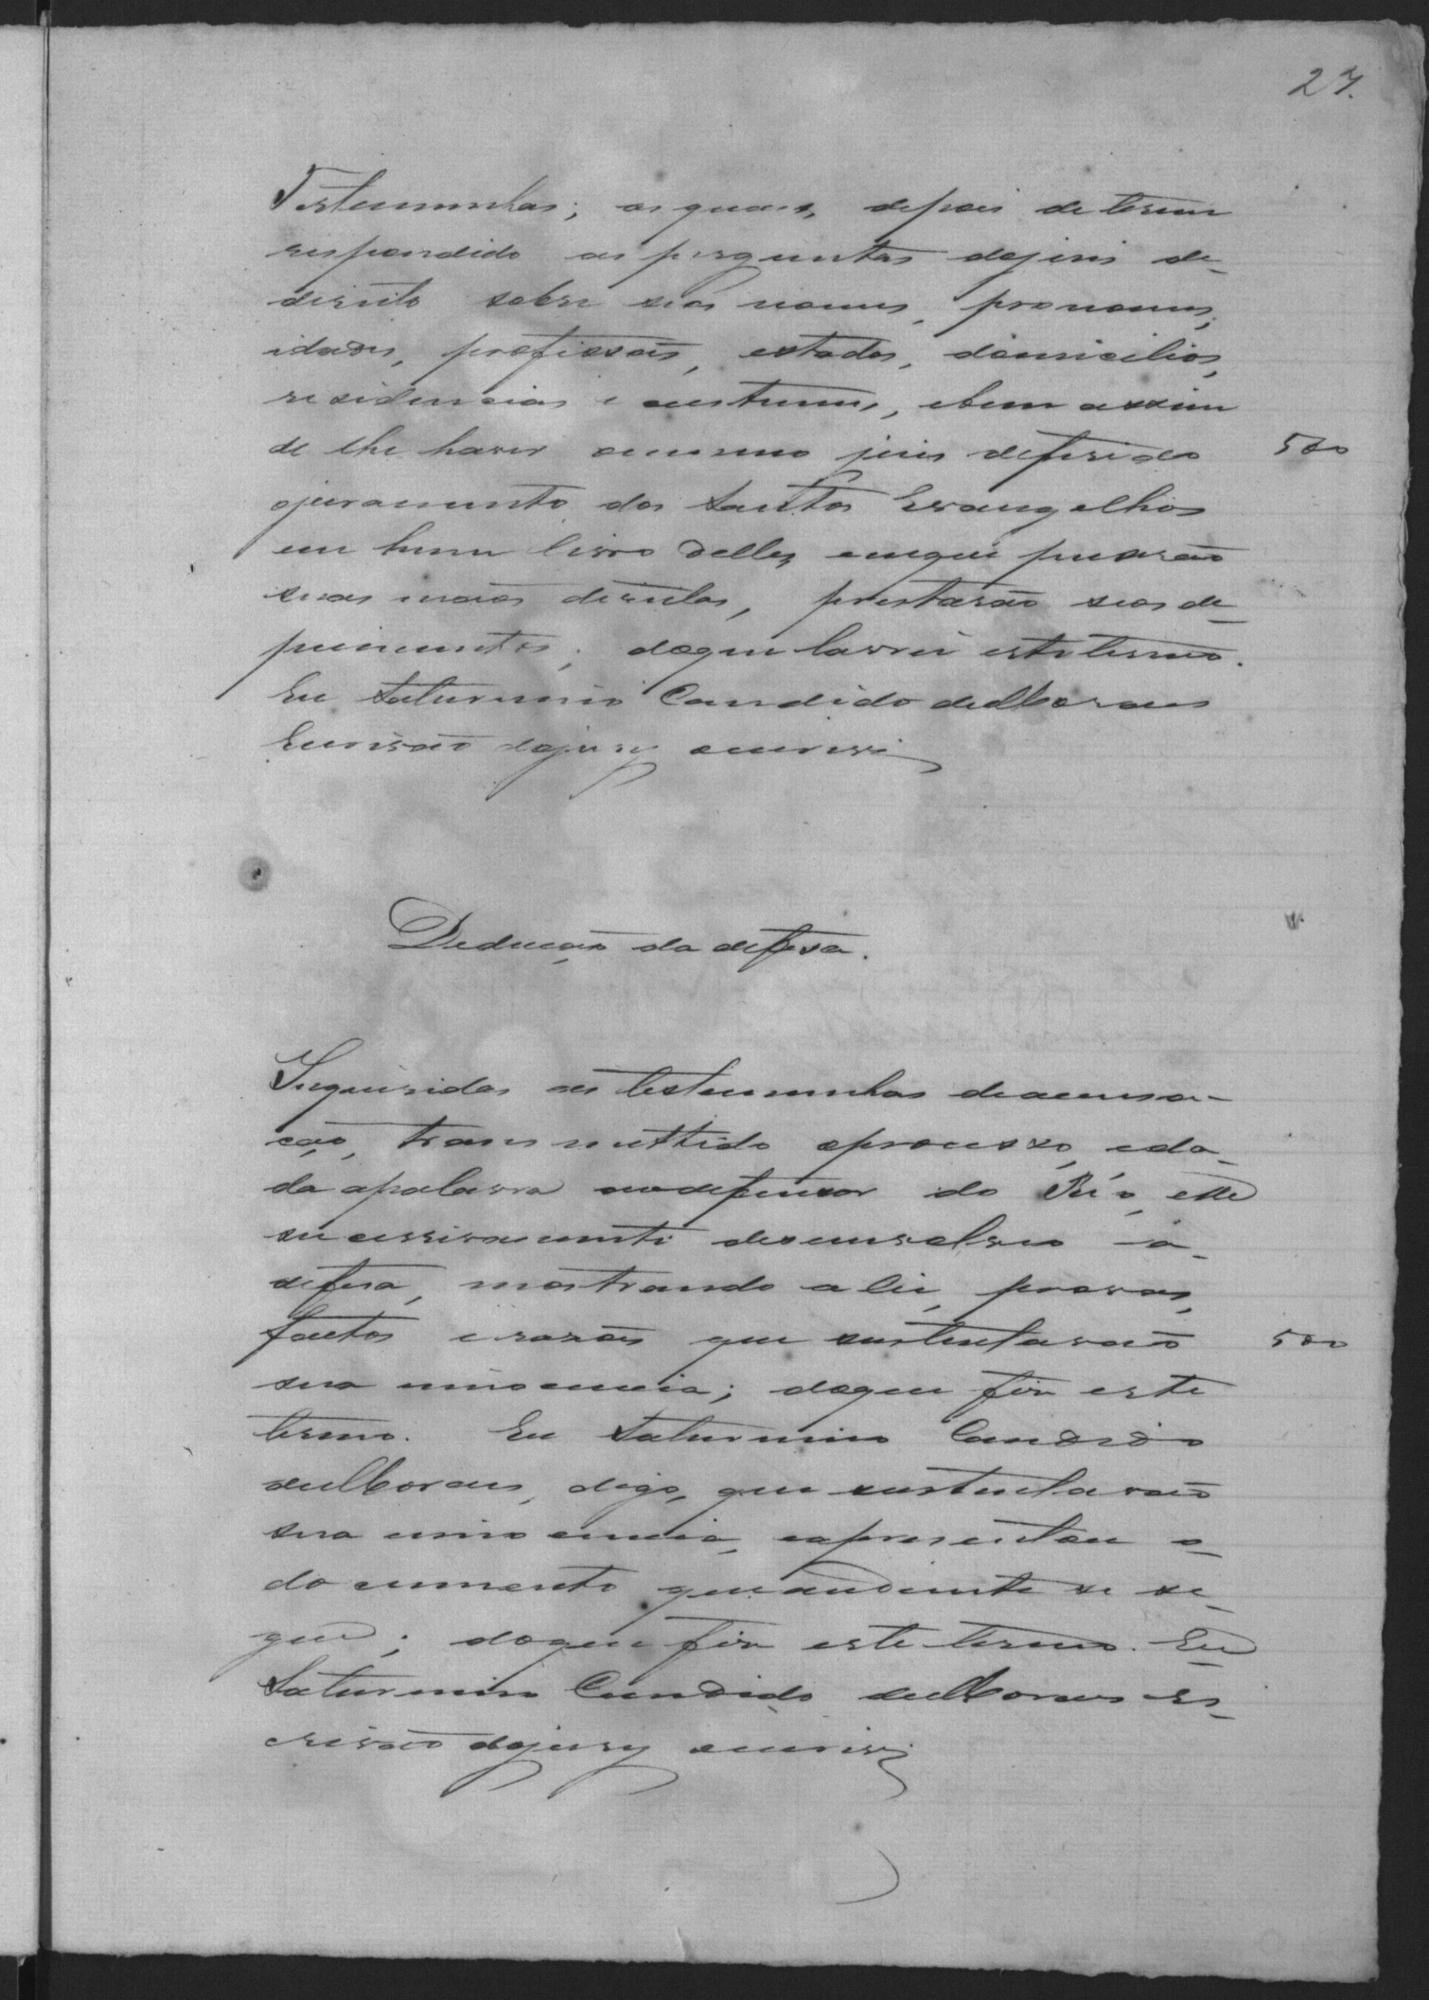 27.
Testemunhas; as quaes, depois de terem
respondido as perguntas do juis de
direito sobre seos nomes, pronomes,
idades, profissoẽs, estados, domicilios,
residencias e custumes, e bem assim
de lhe haver o mesmo juis deferido
500
o juramento dos Santos Evangelhos
em hum livro delles, em que puserão
suas maõs direitas, prestarão seos de-
puimentos; do que lavrei este termo.
Eu Saturnino Candido de Moraes
Escrivão do jury escrevi
Deducção da defesa.
Inqueridas as testemunhas de accusa-
ção, transmittido o processo, e da-
da a palavra ao defensor do Réo, elle
successivamente desenvolveo a
defesa, mostrando a lei, provas,
factos e rasoẽs que sustentavão
500
sua innocencia; do que fis este
termo. Eu Saturnino Candido
de Moraes, digo, que sustentavão
sua innocencia, e apresentou o
documento que adiente se se-
gue; do que fis este termo. Eu
Saturnino Candido de Moraes Es-
crivão do jury escrevi